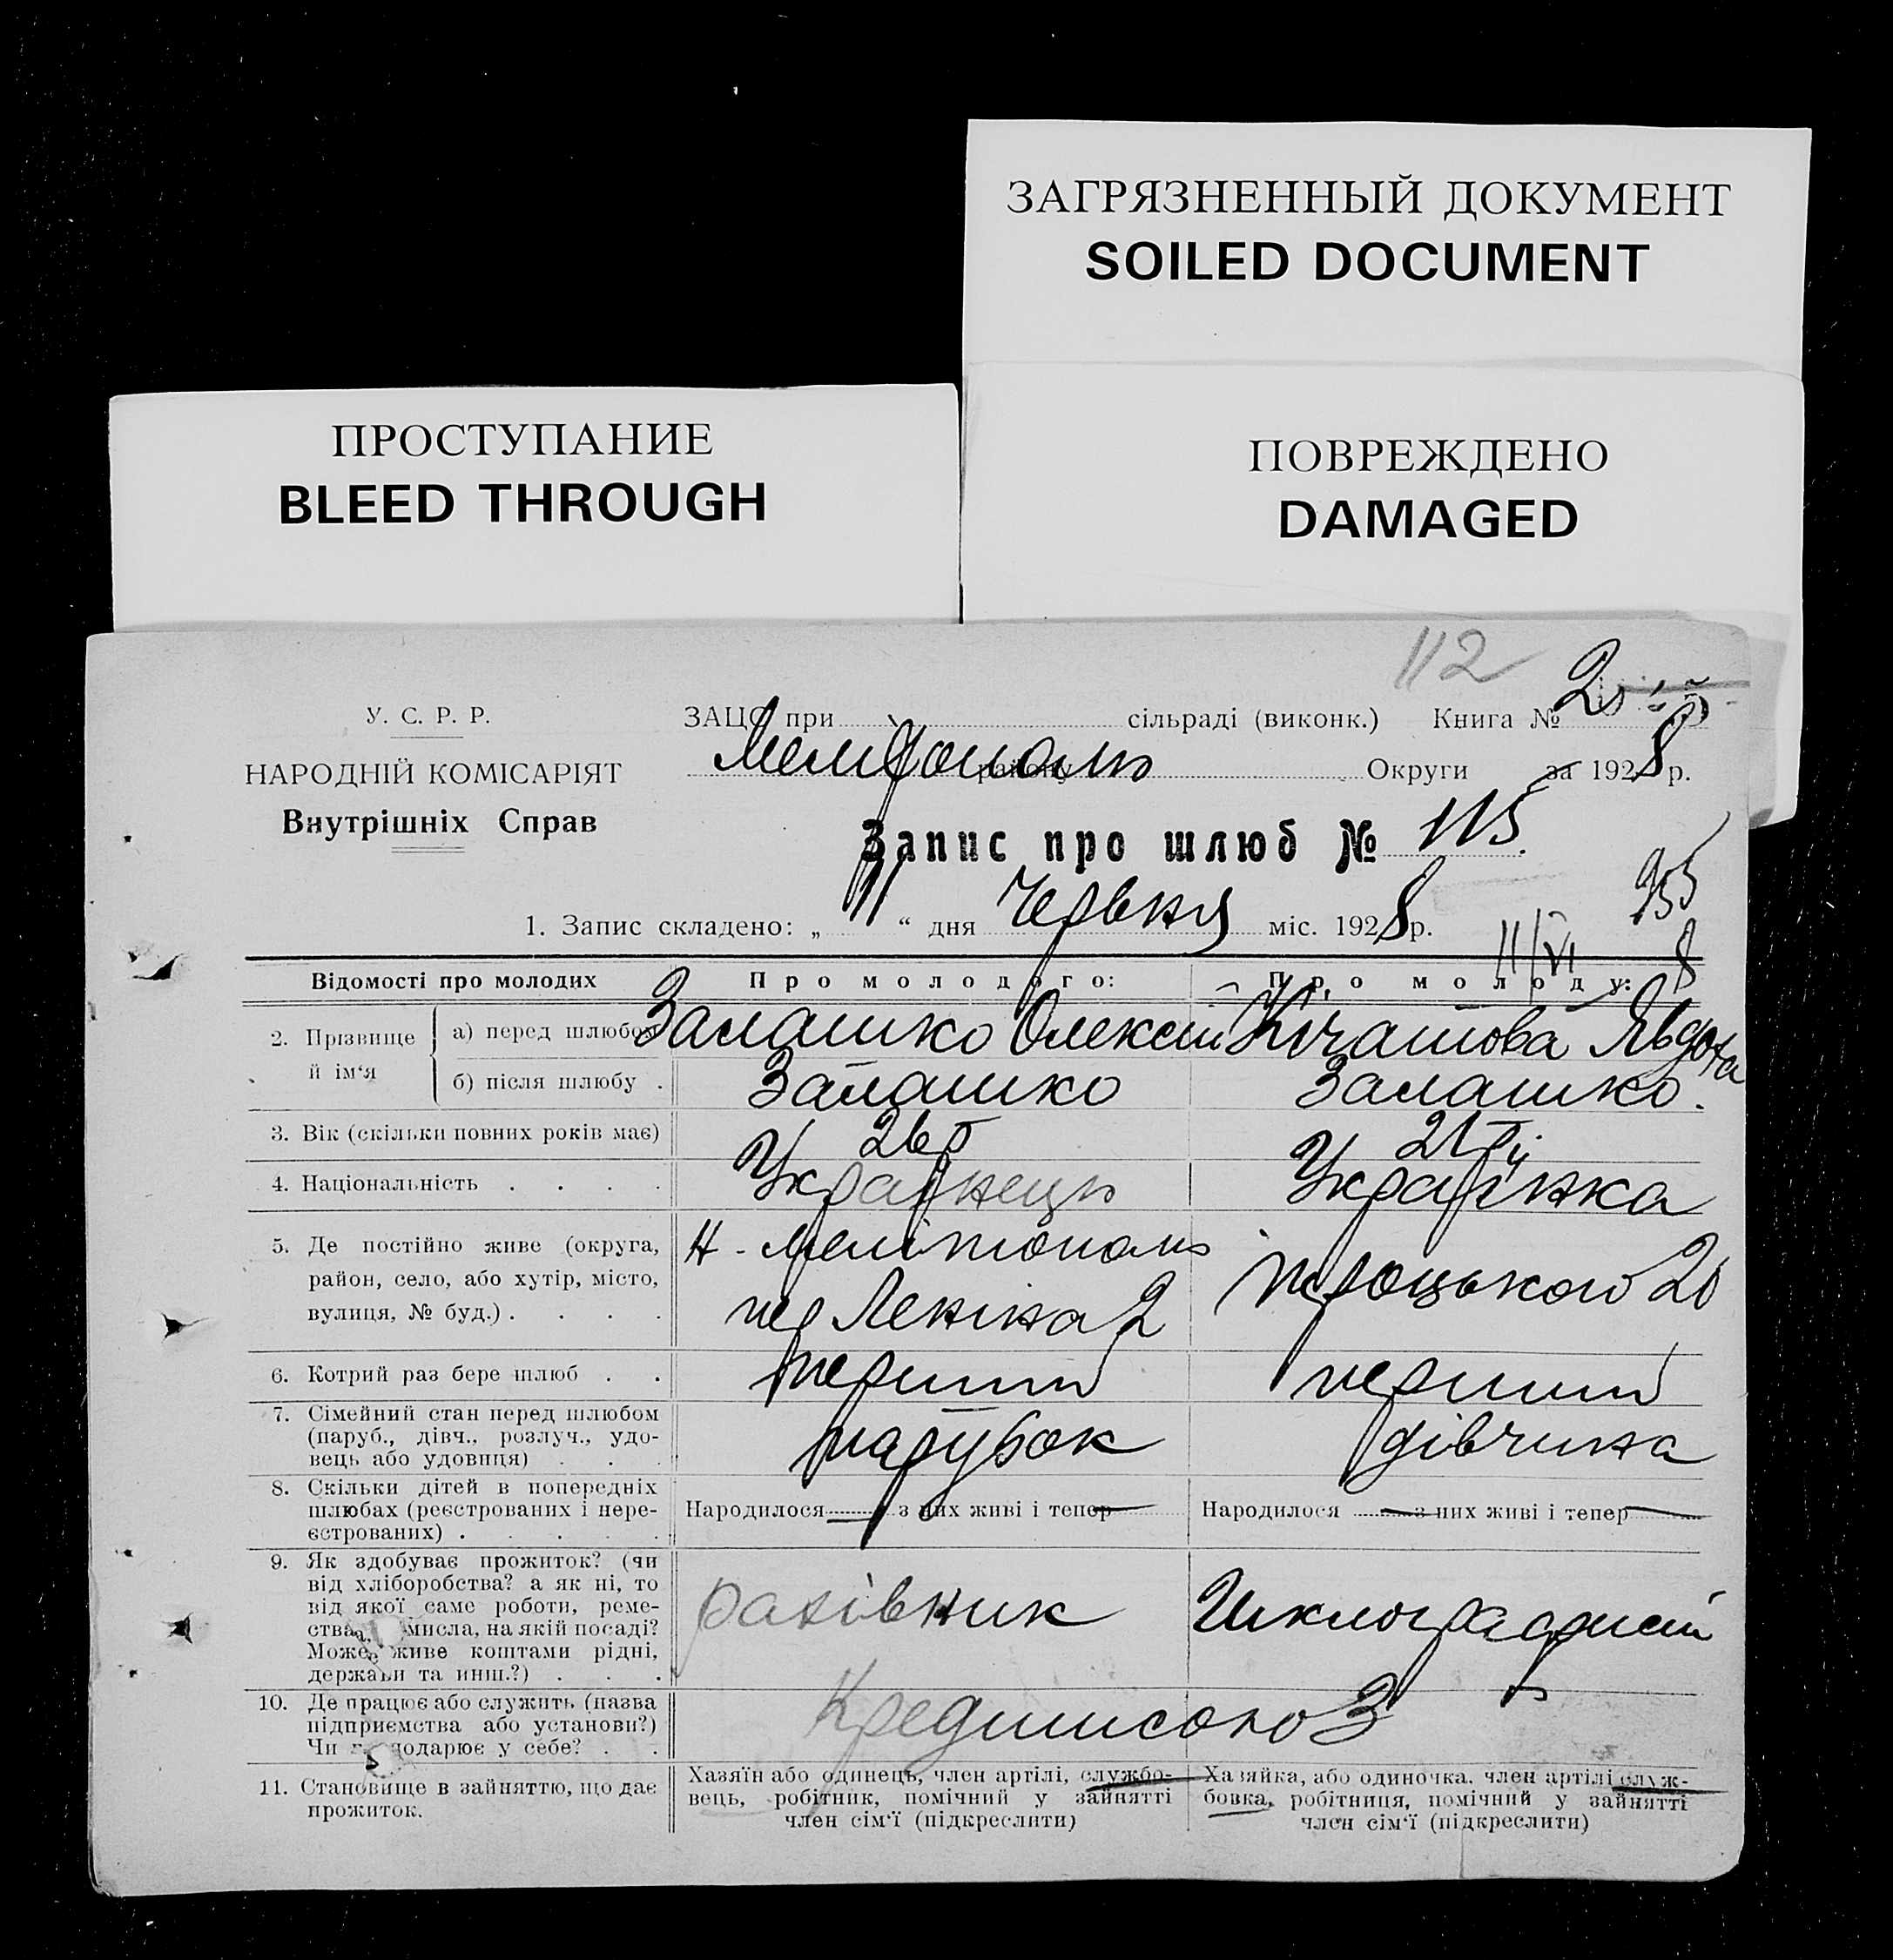 ЗАГРЯЗНЕННЫЙ ДОКУМЕНТ
SOILED DOCUMENT
ПРОСТУПАНИЕ
BLEED THROUGH
ПОВРЕЖДЕНО
DAMAGED
112
У. С. Р. Р.
НАРОДНІЙ КОМІСАРІЯТ
Внутрішніх Справ
ЗАЦС при сільраді (виконк.) Книга № 2
Мелітополь району Округи за 1928 р.
Запис про шлюб № 115.
1. Запис складено: „ 11 “ дня Червня міс. 1928 р.
11/VI 8
Відомості про молодих
Про молодого:
Про молоду:
2. Прізвище й ім‘я
а) перед шлюбом
Залашко Олексій
Явдоха
б) після шлюбу .
Залашко
Залашко.
3. Вік (скільки повних років має)
26
21
4. Національність . . . .
Українець
Українка
5. Де постійно живе (округа,
район, село, або хутір, місто,
вулиця, № буд.) . . . .
Мелітополь
пер Леніна 2
Троцького 20
6. Котрий раз бере шлюб . .
перший
перший
7. Сімейний стан перед шлюбом
(паруб., дівч., розлуч., удо-
вець або удовиця) . . .
парубок
дівчина
8. Скільки дітей в попередніх
шлюбах (реєстрованих і нере-
єстрованих) . . . . .
Народилося — з них живі і тепер —
Народилося — з них живі і тепер —
9. Як здобуває прожиток? (чи
від хліборобства? а як ні, то
від якої саме роботи, реме-
ства, мисла, на якій посаді?
Може живе коштами рідні,
держави та инш.?) . . .
рахівник
10. Де працює або служить (назва
підприємства або установи?)
Чи подарює у себе? . .
Кредитсоюз
11. Становище в зайняттю, що дає
прожиток.
Хазяїн або одинець, член артілі, службо-
вець, робітник, помічний у зайнятті
член сім‘ї (підкреслити)
Хазяйка, або одиночка, член артілі служ-
бовка, робітниця, помічний у зайнятті
член сім‘ї (підкреслити)